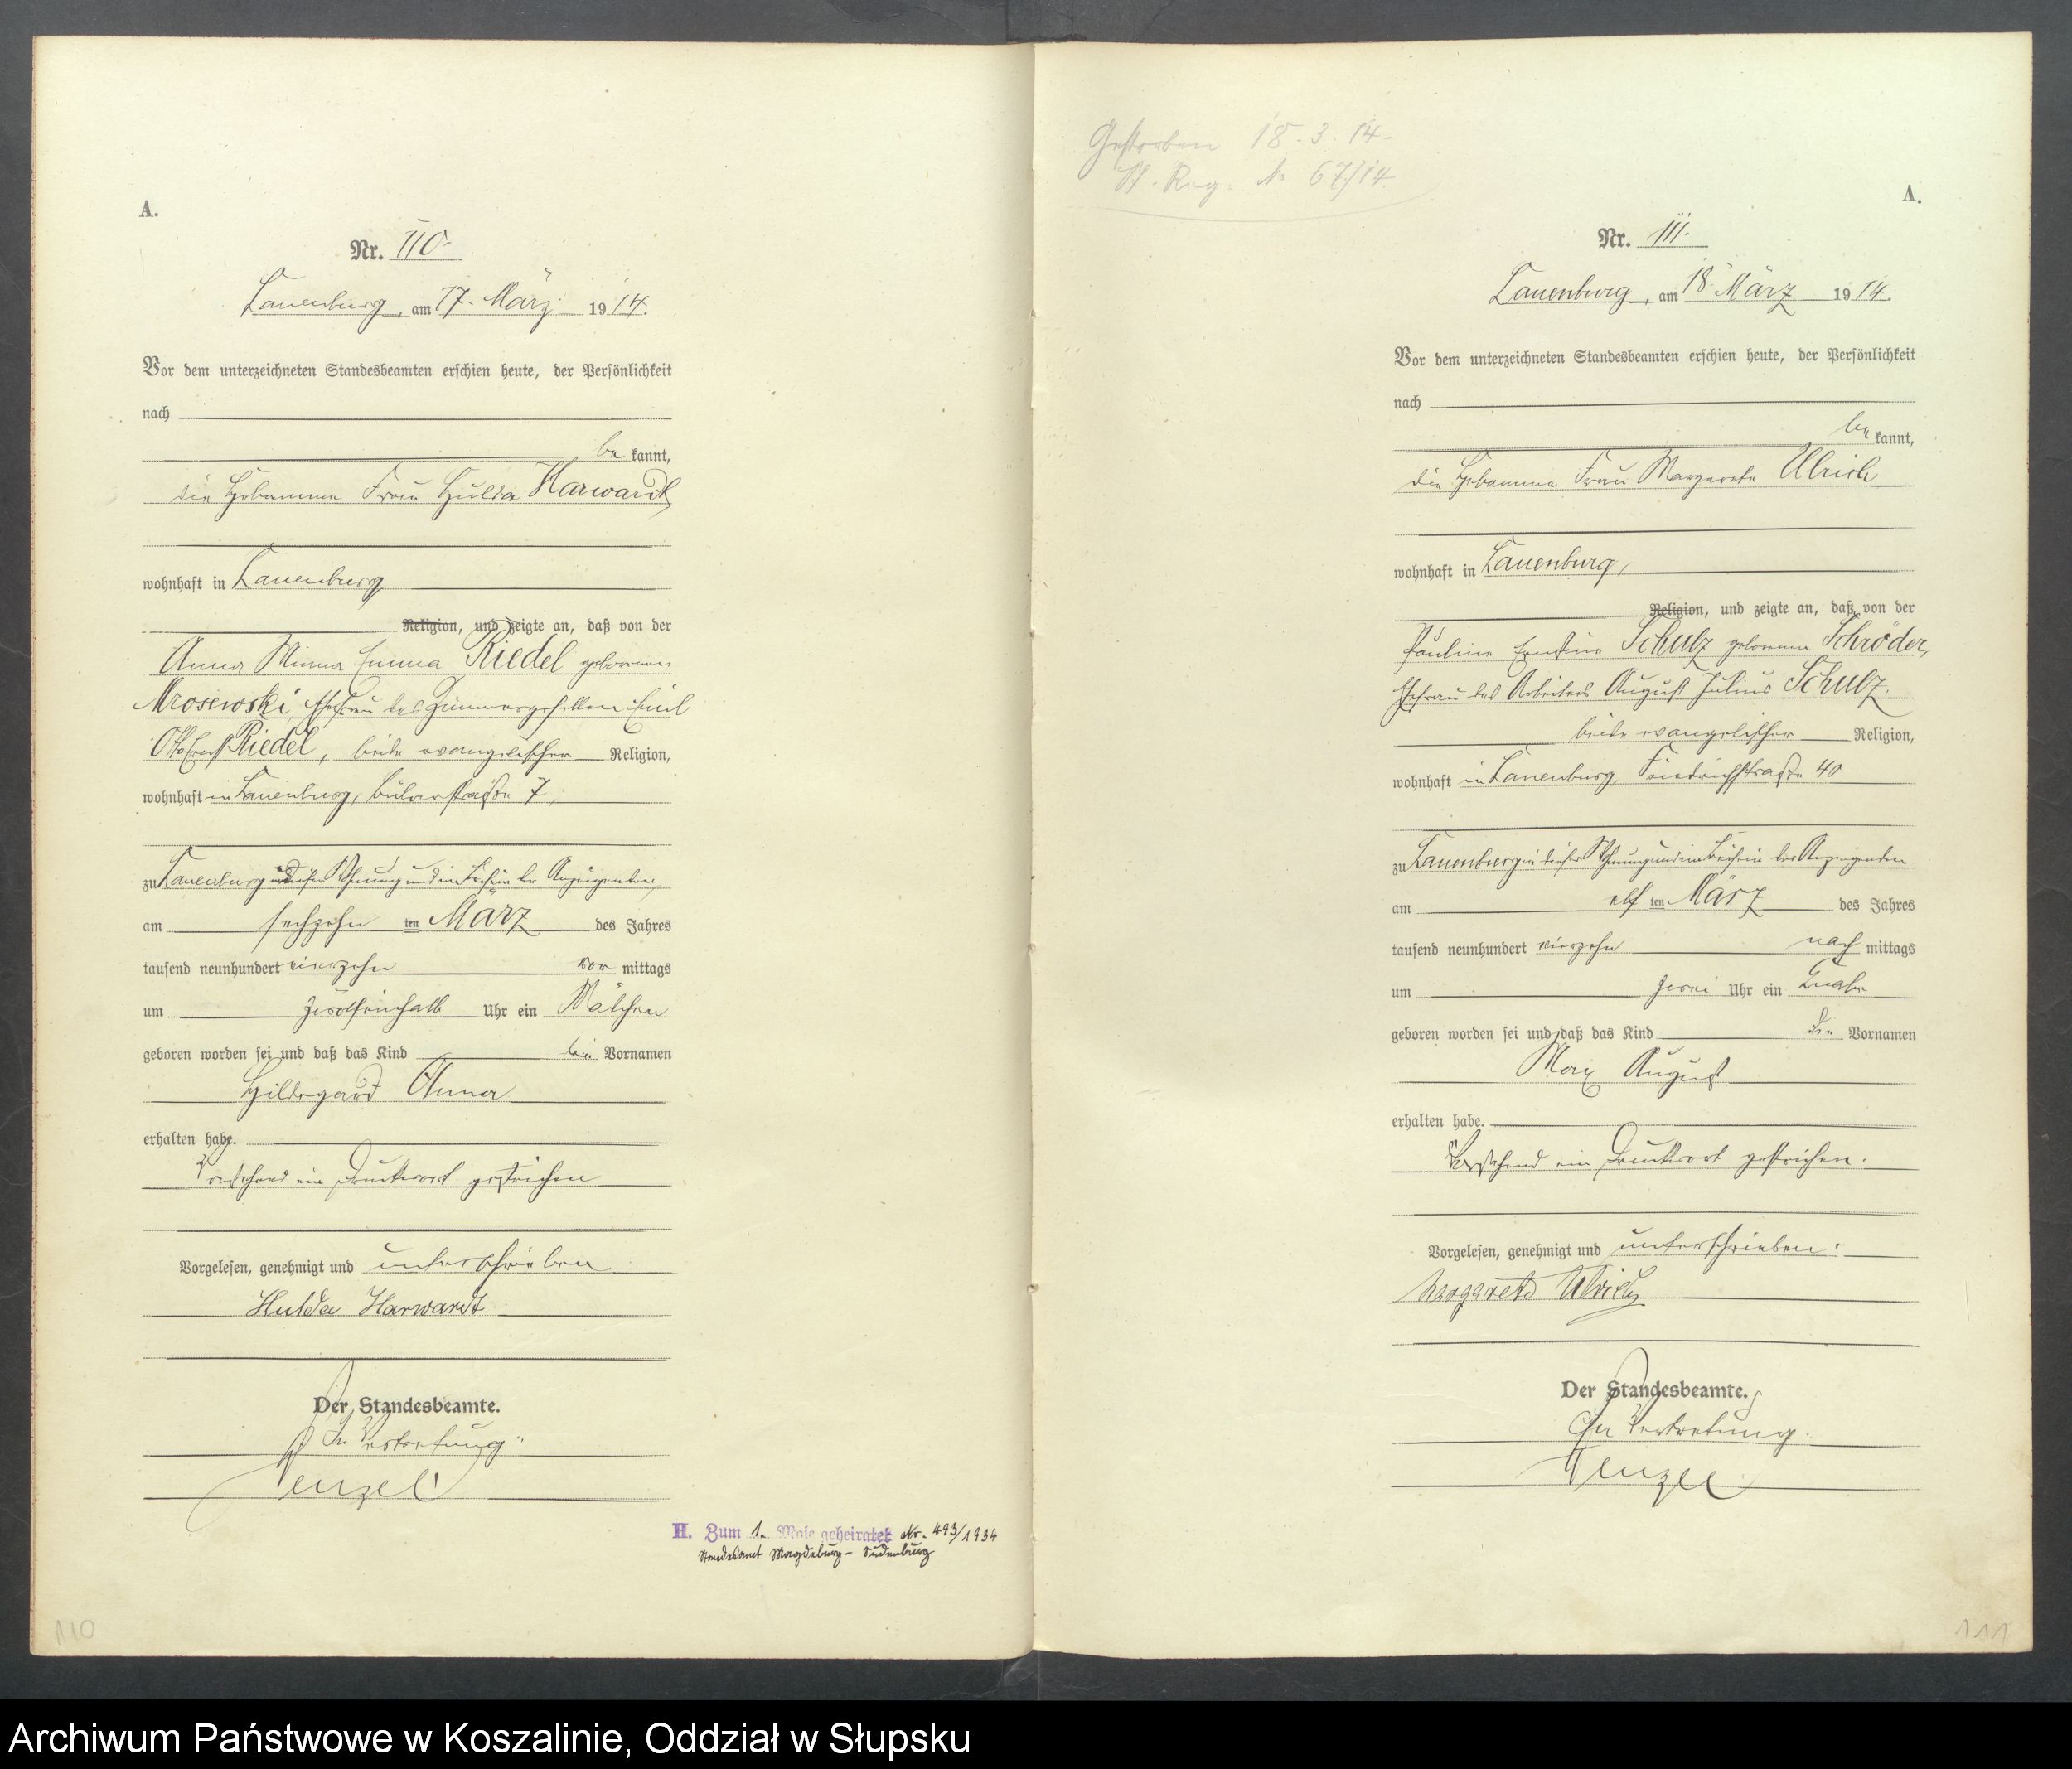 A.
Nr. 110.
Lauenburg, am 17. März 1914.
Vor dem unterzeichneten Standesbeamten erschien heute, der Persönlichkeit
nach
bekannt,
die Hebamme Frau Hulda Harwardt,
wohnhaft in Lauenburg
Religion, und zeigte an, daß von der
Anna Minna Emma Riedel geborenen
Mrosewski, Ehefrau des Zimmergesellen Emil
Otto Ernst Riedel, beide evangelischer Religion,
wohnhaft in Lauenburg, Bülowstraße 7,
zu Lauenburg in dieser Wohnung und im Beisein der Anzeigenden,
am sechzehnten März des Jahres
tausend neunhundert vierzehn vormittags
um zwölfeinhalb Uhr ein Mädchen
geboren worden sei und daß das Kind die Vornamen
Hildegard Anna
erhalten habe.
Vorstehend ein Druckwort gestrichen
Vorgelesen, genehmigt und unterschrieben
Hulda Harwardt
Der Standesbeamte.
In Vertretung.
Wenzel
H. Zum 1. Male geheiratet Nr. 493/1934
Standesamt Magdeburg-Sudenburg
110
Gestorben 18.3.14.
St. Reg. No 67/14.
A.
Nr. 111.
Lauenburg, am 18. März 1914.
Vor dem unterzeichneten Standesbeamten erschien heute, der Persönlichkeit
nach
bekannt,
die Hebamme Frau Margarete Ulrich
wohnhaft in Lauenburg,
Religion, und zeigte an, daß von der
Pauline Ernstine Schulz geborenen Schröder,
Ehefrau des Arbeiters August Julius Schulz.
beide evangelischer Religion,
wohnhaft in Lauenburg, Friedrichstraße 40
zu Lauenburg in dieser Wohnung und im Beisein der Anzeigenden
am elften März des Jahres
tausend neunhundert vierzehn nachmittags
um zwei Uhr ein Knabe
geboren worden sei und daß das Kind die Vornamen
Max August
erhalten habe.
Vorstehend ein Druckwort gestrichen.
Vorgelesen, genehmigt und unterschrieben.
Margarete Ulrich
Der Standesbeamte.
In Vertretung.
Wenzel
111
Archiwum Państwowe w Koszalinie, Oddział w Słupsku